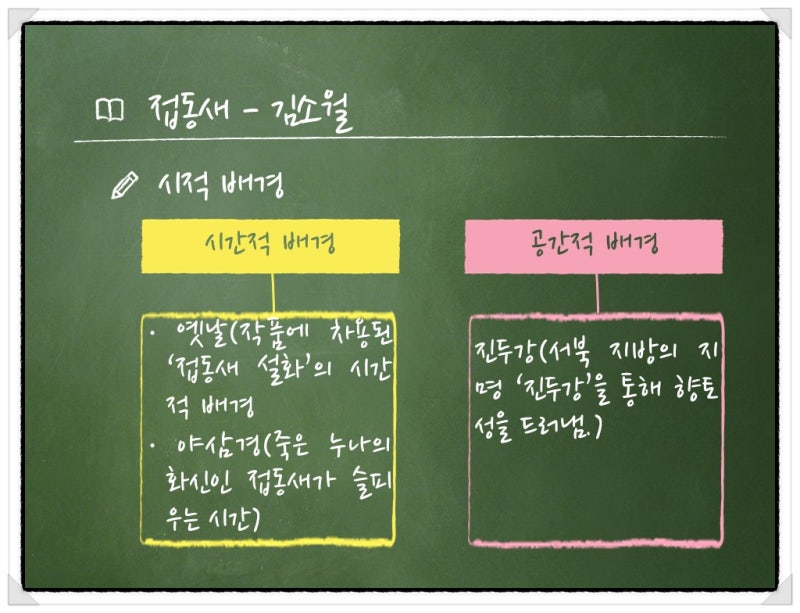 접동새 - 김소월
시적 배경
시간적 배경
· 옛날(작품에 차용된
'접동새 설화'의 시간
적 배경
· 야삼경(죽은 누나의
화신인 접동새가 슬피
우는 시간)
공간적 배경
진두강(서북 지방의 지
명 '진두강'을 통해 향토
성을 드러냄.)